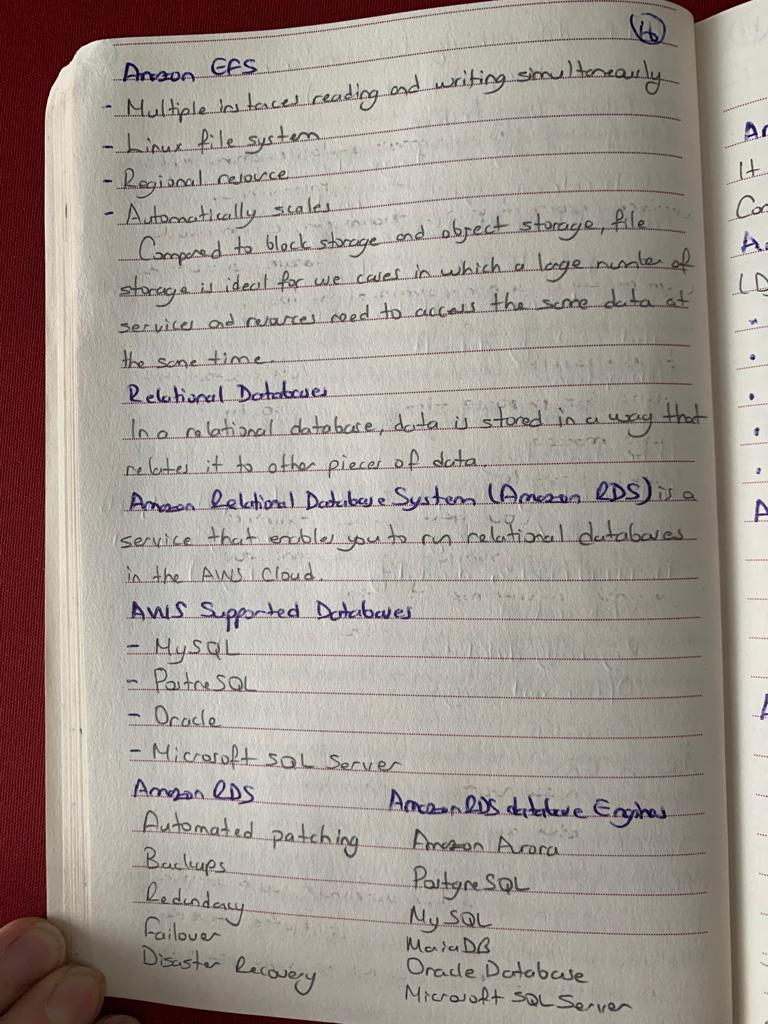 46
Amazon EFS
- Multiple instaces reading and writing simultaneously
- Linux file system
- Regional resource
- Automatically scales
Compared to block storage and object storage, file
storage is ideal for use cases in which a large number of
services and resources need to access the same data at
the same time.
Relational Databases
In a relational database, data is stored in a way that
relates it to other pieces of data.
Amazon Relational Database System (Amazon RDS) is a
service that enables you to run relational databases
in the AWS Cloud.
AWS Supported Databases
- MySQL
- PostreSQL
- Oracle
- Microsoft SQL Server
Amazon RDS
Automated patching
Backups
Redundacy
Failover
Disaster Recovery
Amazon RDS database Engines
Amazon Arora
PostgreSQL
MySQL
MariaDB
Oracle Database
Microsoft SQL Server
It